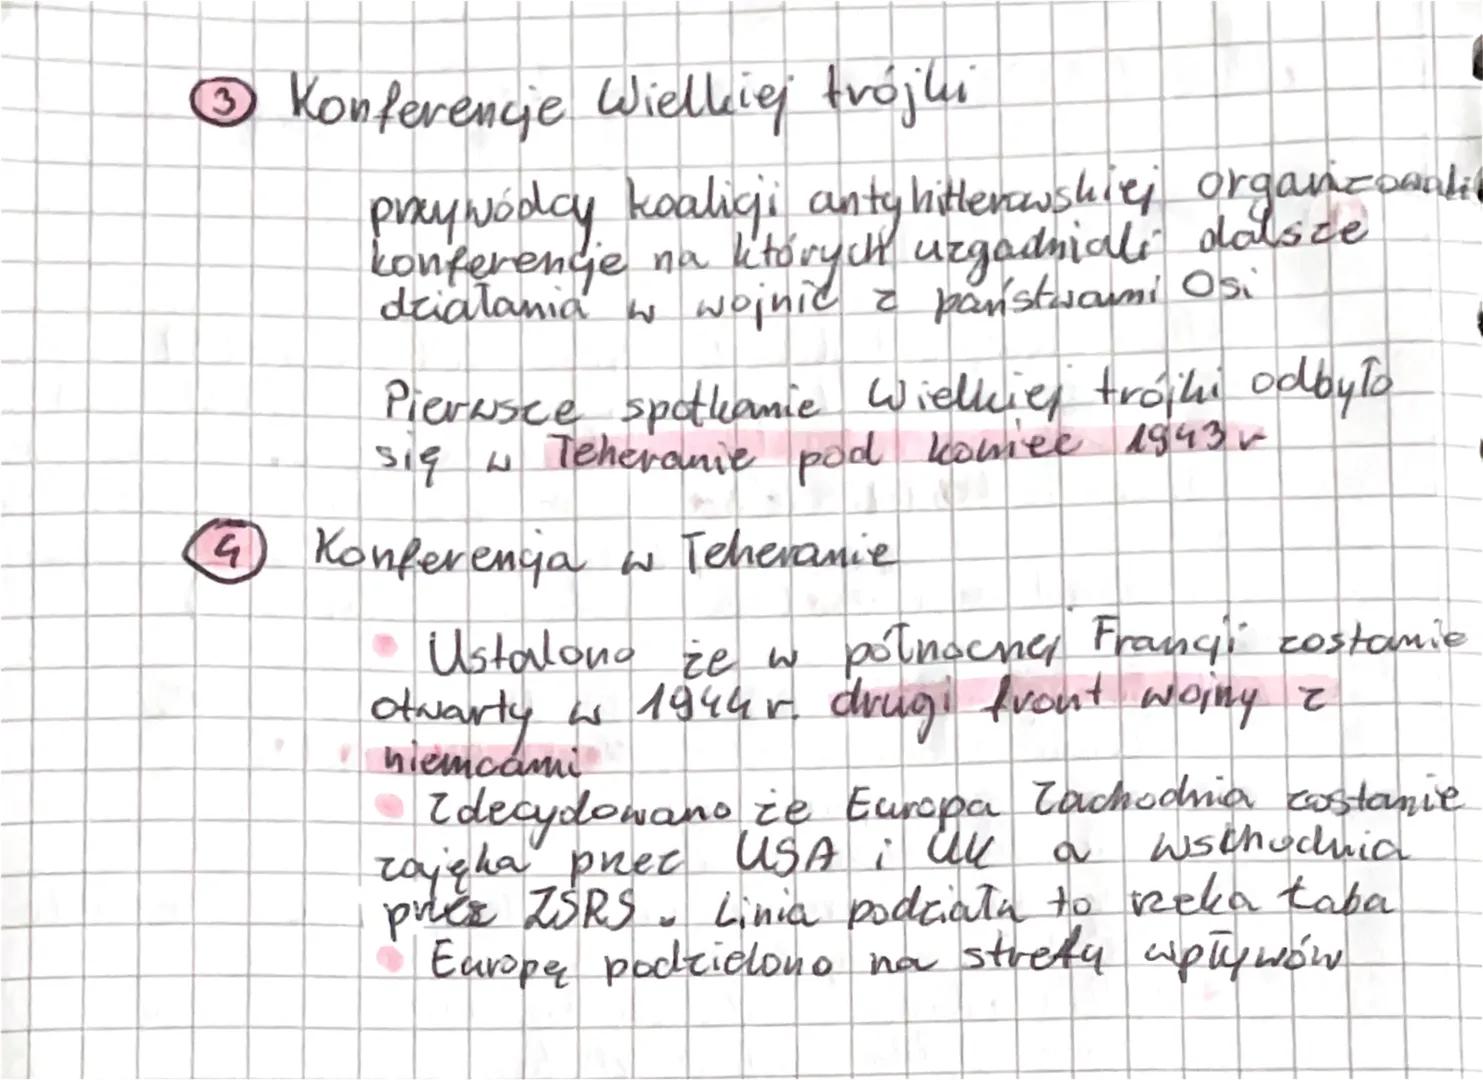 3 Konferencje Wielkiej trójki
przywódcy koalicji antyhitlerowskiej organizowali
konferencje na których uzgadniali dalsze
działania w wojnie z państwami Osi
Pierwsze spotkanie Wielkiej trójki odbyło
się w Teheranie pod koniec 1943 r
4 Konferencja w Teheranie
• Ustalono że w północnej Francji zostanie
otwarty w 1944 r. drugi front wojny z
niemcami
• Zdecydowano że Europa Zachodnia zostanie
zajęta przez USA i UK a wschodnia
przez ZSRS. Linia podziału to rzeka Łaba
• Europę podzielono na strefy wpływów